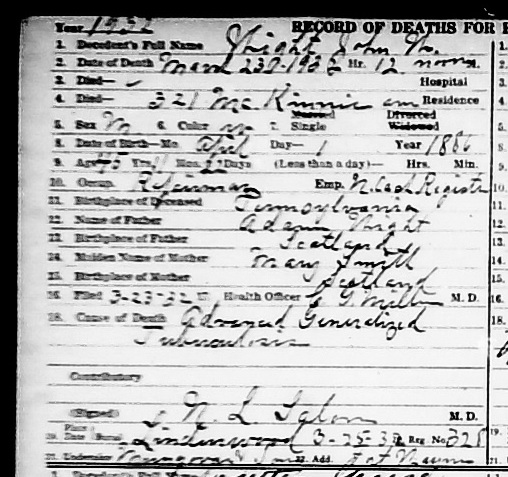 Year 1932 RECORD OF DEATHS FOR
1. Decedent's Full Name Wight John W.
2. Date of Death March 23rd 1932 Hr. 12 noon M.
3. Died— Hospital
4. Died— 321 McKinnie ave Residence
Married Divorced
5. Sex M 6. Color W 7. Single Widowed
8. Date of Birth—Mo. April Day— 1 Year 1886
9. Age 45 Yrs. 11 Mos. 22 Days (Less than a day)— Hrs. Min.
10. Occup. Repairman Emp. N. Cash Registr
11. Birthplace of Deceased Pennsylvania
12. Name of Father Adam Wight
13. Birthplace of Father Scotland
14. Maiden Name of Mother Mary Smith
15. Birthplace of Mother Scotland
16. Filed 3-23-32 17. Health Officer M. D.
18. Cause of Death Advanced Generalized
Tuberculosis
Contributory
(Signed) N. L. M. D.
Place
20. Date (Burial) Lindenwood 3-25-32 Reg. No. 328
21. Undertaker & Sons 22. Add. Ft Wayne
1. Decedent's Full Name